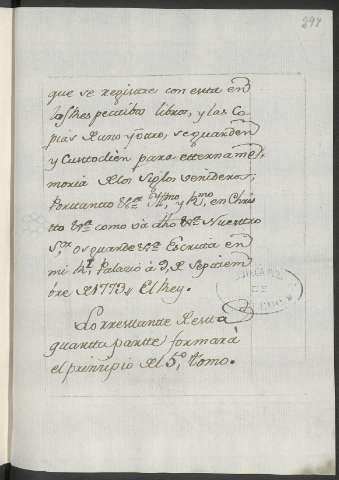 297
que se registre con esta en
los Respectibos libros, y las Co
pias de uno y otro, se guarden
y Custodien para etterna me
moria de los Siglos venideros;
Portanto
y Rmo. en Chris
tto como vá dho Nuestro
Sor. os guarde Escrita en
mi Rl. Palacio á 9, de Septiem
bre de 1779,, El Rey.
Lo rrestante de esta
quartta partte formará
el principio del 5º, tomo.